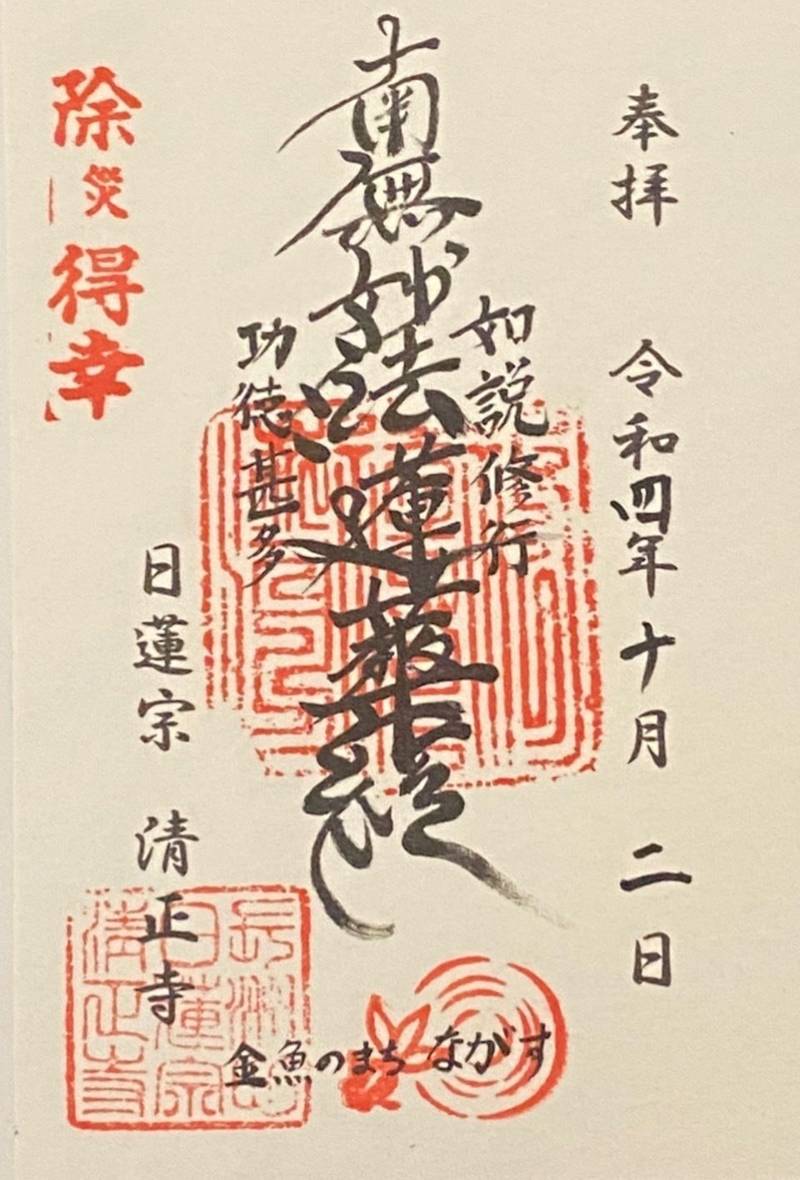 奉拝 令和四年十月 二日
如説修行
南無妙法蓮華経
功徳甚多
日蓮宗 清正寺
除災得幸
日蓮宗
清正寺
金魚のまち ながす